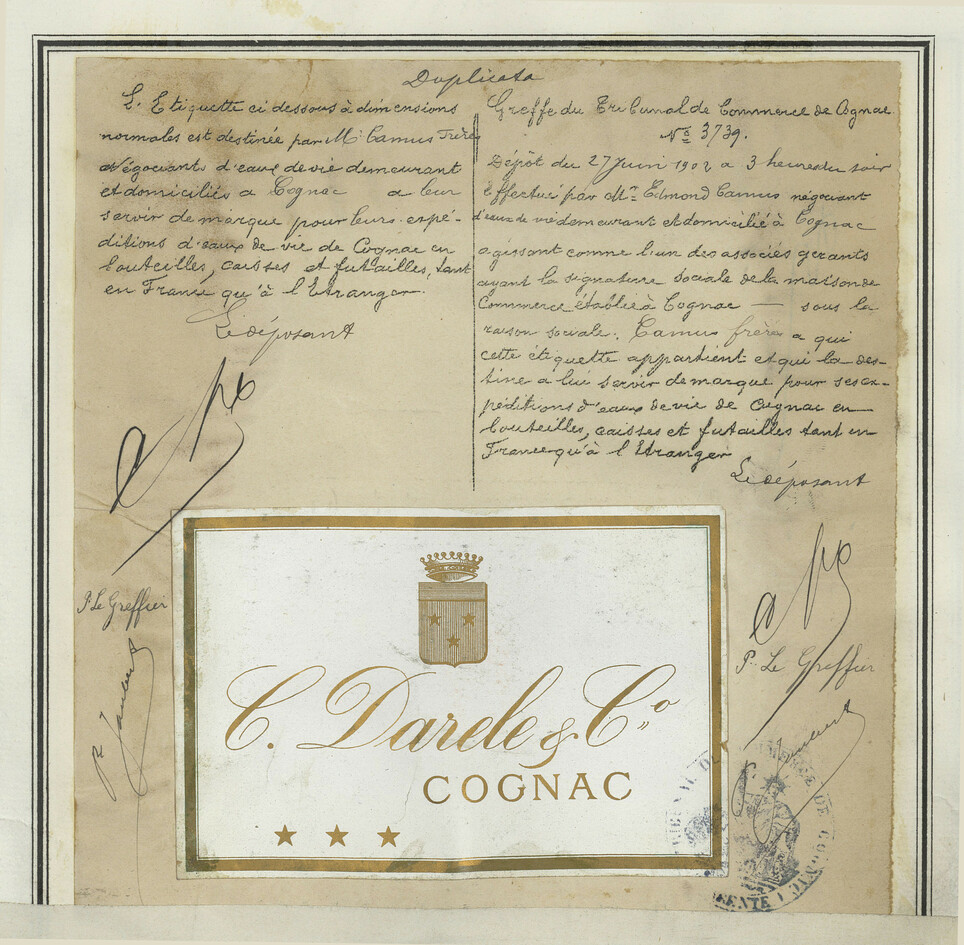 Duplicata
L'Etiquette ci dessous à dimensions
normales est destinée par Mrs Camus Frères
négociants d'eaux de vie demeurant
et domiciliés a Cognac a leur
servir de marque pour leurs expé-
ditions d'eaux de vie de Cognac en
bouteilles, caisses et futailles, tant
en France qu'à l'Etranger.
Le déposant
P. Le Greffier
Greffe du Tribunal de Commerce de Cognac
No 3739.
Dépôt du 27 Juin 1902 a 3 heures du soir
effectué par Mr. Edmond Camus négociant
d'eaux de vie demeurant et domicilié à Cognac
agissant comme l'un des associés gérants
ayant la signature sociale de la maison de
Commerce établie à Cognac — sous la
raison sociale. Camus frères a qui
cette étiquette appartient et qui la des-
tine a lui servir de marque pour ses ex-
péditions d'eaux de vie de Cognac en
bouteilles, caisses et futailles tant en
France qu'à l'Etranger
Le déposant
P. Le Greffier
C. Darele & Co
COGNAC